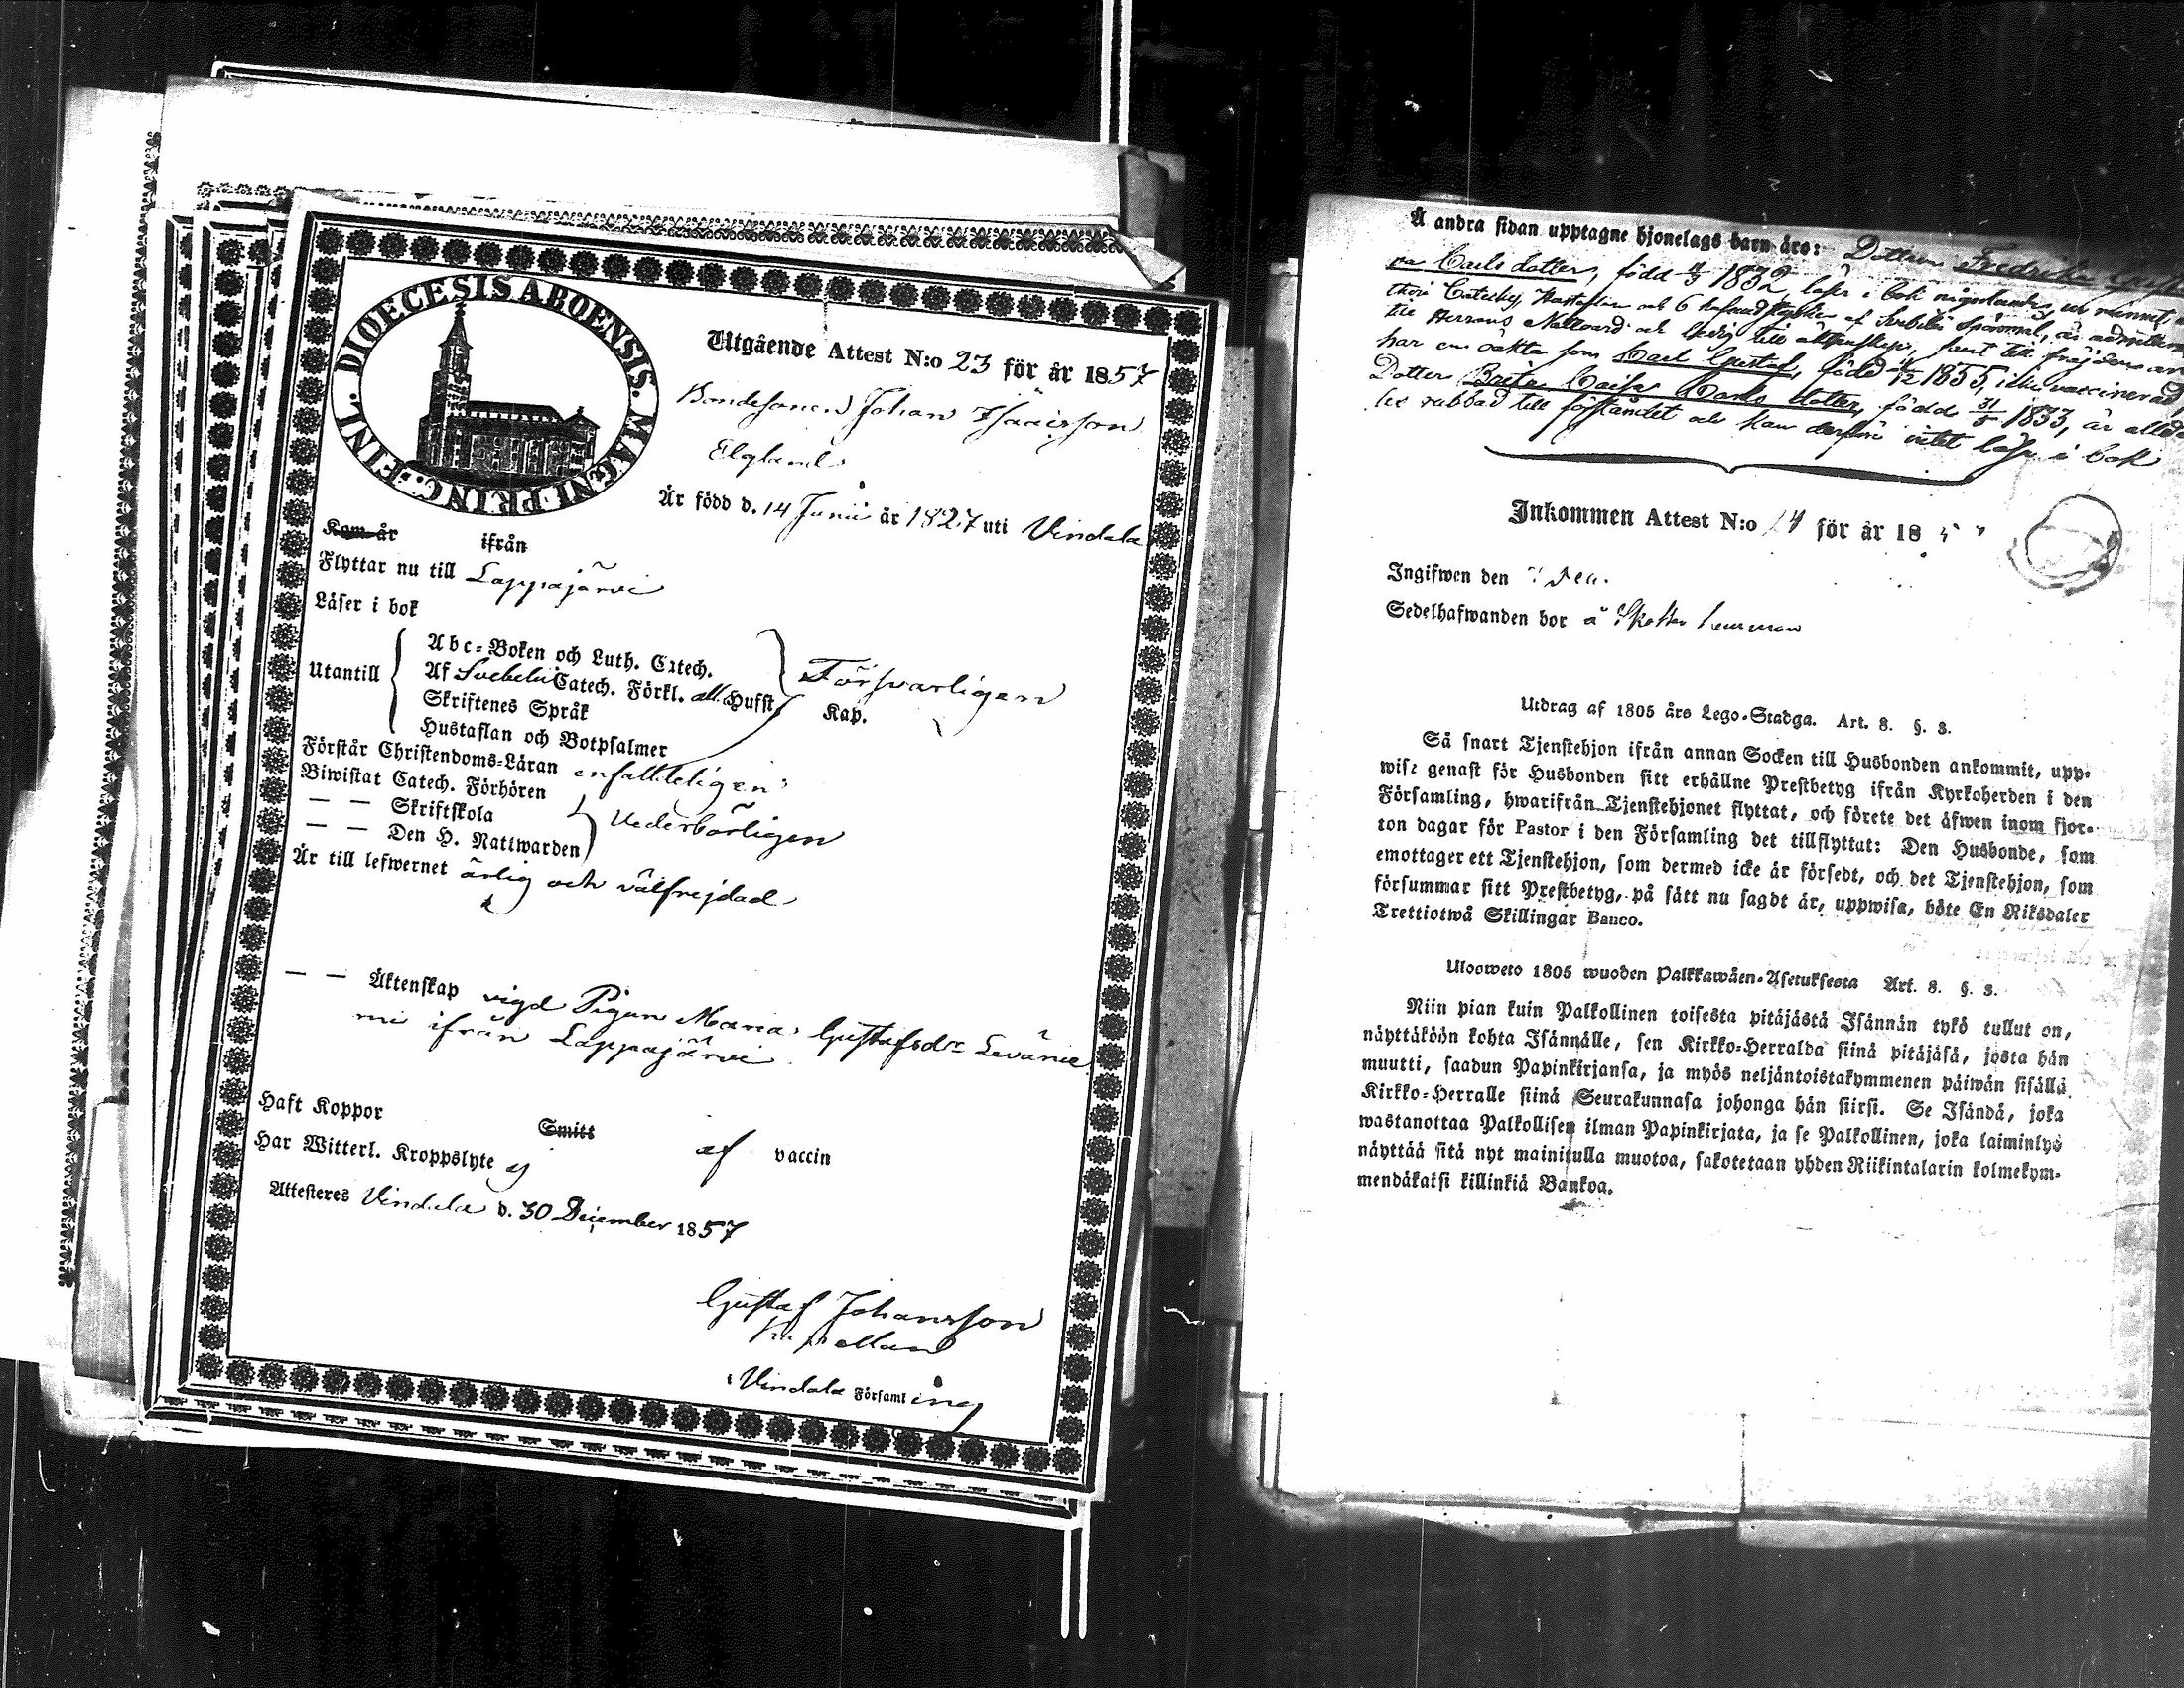 DIOECESIS ABOENSIS. MAGNI PRINC. FINL.
Utgående Attest N:o 23 för år 1857
Bondesonen Johan Isaacsson
Elgland
Är född d. 14 Junii år 1827 uti Vindala
Kom år ifrån
Flyttar nu till Lappajärvi
Läser i bok
Utantill
Abc-Boken och Luth. Catech.
Af Svebelii Catech. Förkl. all. Hufst.
Kap.
Försvarligen
Skriftenes Språk
Hustaflan och Botpsalmer
Förstår Christendoms-Läran enfalldeligen
Biwistat Catech. Förhören
— — Skriftskola
Vederbörligen
— — Den H. Nattwarden
Är till lefwernet ärlig och välfrejdad
— — Äktenskap vigd Pigan Maria Gustafsdr Levänie
mi ifrån Lappajärvi
Haft Koppor Smitt af vaccin
Har Witterl. Kroppslyte ej
Attesteres Vindala d. 30 December 1857
Gustaf Johansson
Kapellan
i Vindala Församling
Å andra sidan upptagne hjonelags barn äro: Dottren Fredrika
va Carls dotter, född 1832, läser i bok
till Herrans Nattvard och ledig till äktenskap, samt till frejden
har en oäkta son Carl Gustaf, född 1855, icke vaccinerad,
Dotter Brita Caisa Carls dotter, född 31/5 1833, är
les rubbad till förståndet och kan derföre intet läsa i bok
Inkommen Attest N:o 14 för år 18
Ingifwen den
Sedelhafwanden bor å
Utdrag af 1805 års Lego-Stadga. Art. 8. §. 3.
Så snart Tjenstehjon ifrån annan Socken till Husbonden ankommit, upp-
wise genast för Husbonden sitt erhållne Prestbetyg ifrån Kyrkoherden i den
Församling, hwarifrån Tjenstehjonet flyttat, och förete det äfwen inom fjor-
ton dagar för Pastor i den Församling det tillflyttat: Den Husbonde, som
emottager ett Tjenstehjon, som dermed icke är försedt, och det Tjenstehjon, som
försummar sitt Prestbetyg, på sätt nu sagdt är, uppwisa, böte En Riksdaler
Trettiotwå Skillingar Banco.
Ulosweto 1805 wuoden Palkkawäen-Asetuksesta Art. 8. §. 3.
Niin pian kuin Palkollinen toisesta pitäjästä Isännän tykö tullut on,
näyttäköön kohta Isännälle, sen Kirkko-Herralda siinä pitäjäsä, josta hän
muutti, saadun Papinkirjansa, ja myös neljäntoistakymmenen päiwän sisällä
Kirkko-Herralle siinä Seurakunnasa johonga hän siirsi. Se Isändä, joka
wastanottaa Palkollisen ilman Papinkirjata, ja se Palkollinen, joka laiminlyö
näyttää sitä nyt mainitulla muotoa, sakotetaan yhden Riikintalarin kolmekym-
mendäkaksi killinkiä Bankoa.